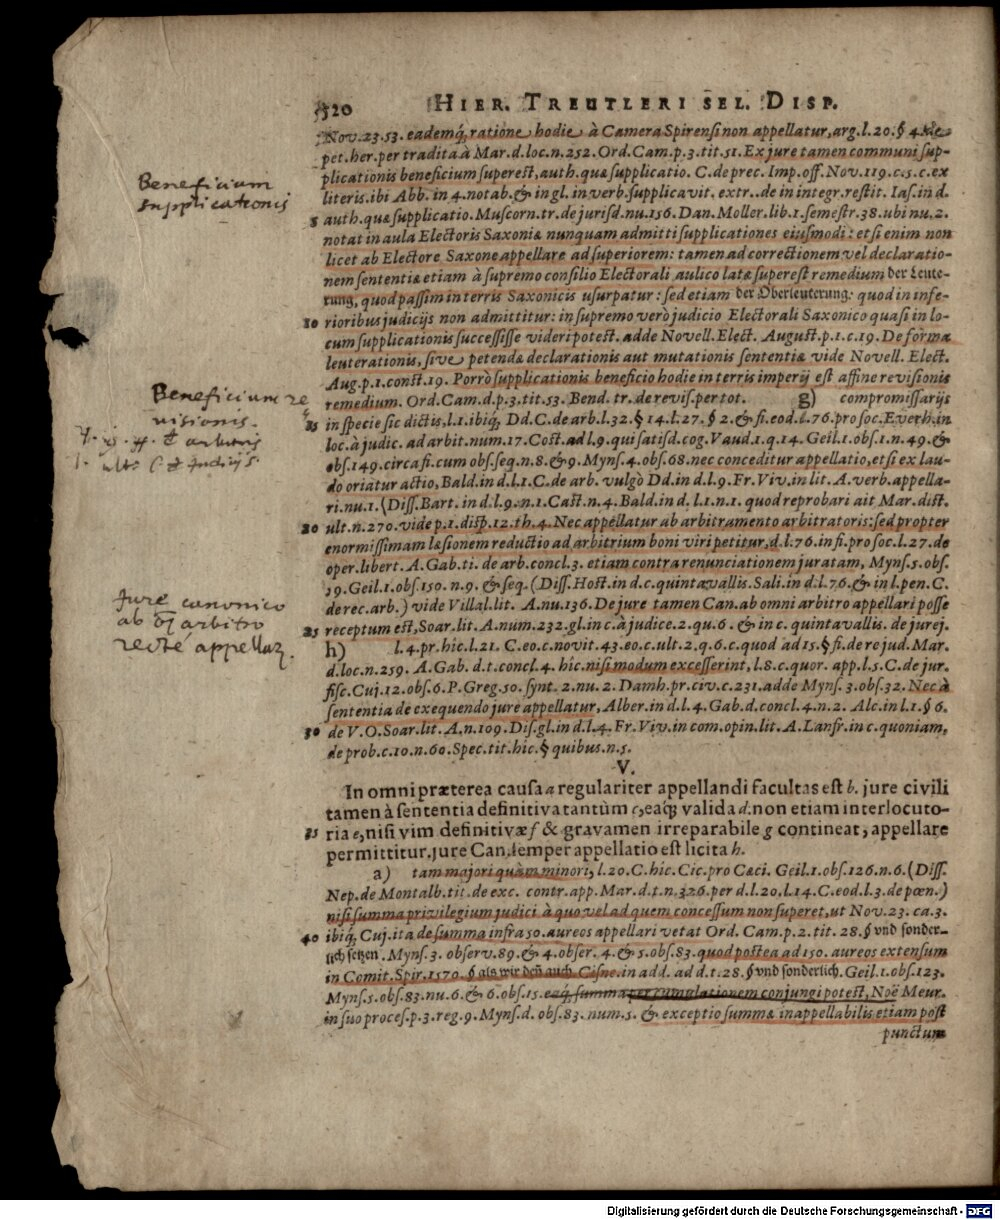 520 HIER. TREUTLERI SEL. DISP.
Nov. 23. 53. eademq́; ratione hodie à Camera Spirensi non appellatur, arg. l. 20. § 4. de
pet. her. per tradita à Mar. d. loc. n. 252. Ord. Cam. p. 3. tit. 51. Ex jure tamen communi sup-
plicationis beneficium superest, auth. quæ supplicatio. C. de prec. Imp. off. Nov. 119. c. 5. c. ex
literis. ibi Abb. in 4. notab. & in gl. in verb. supplicavit. extr. de in integr. restit. Ias. in d.
5 auth. quæ supplicatio. Muscorn. tr. de jurisd. nu. 156. Dan. Moller. lib. 1. semestr. 38. ubi nu. 2.
notat in aula Electoris Saxoniæ nunquam admitti supplicationes eiusmodi: etsi enim non
licet ab Electore Saxone appellare ad superiorem: tamen ad correctionem vel declaratio-
nem sententiæ etiam à supremo consilio Electorali aulico latæ superest remedium der Leute-
rung, quod passim in terris Saxonicis usurpatur: sed etiam der Oberleuterung: quod in infe-
10 rioribus judicijs non admittitur: in supremo verò judicio Electorali Saxonico quasi in lo-
cum supplicationis successisse videri potest. adde Novell. Elect. August. p. 1. c. 19. De forma
leuterationis, sive petendæ declarationis aut mutationis sententiæ vide Novell. Elect.
Aug. p. 1. const. 19. Porrò supplicationis beneficio hodie in terris imperij est affine revisionis
remedium. Ord. Cam. d. p. 3. tit. 53. Bend. tr. de revis. per tot. g) compromissarijs
15 in specie sic dictis, l. 1. ibiq́; Dd. C. de arb. l. 32. § 14. l. 27. § 2. & fi. eod. l. 76. pro soc. Everh. in
loc. à judic. ad arbit. num. 17. Cost. ad l. 9. qui satisd. cog. Vaud. 1. q. 14. Geil. 1. obs. 1. n. 49. &
obs. 149. circa fi. cum obs. seq. n. 8. & 9. Myns. 4. obs. 68. nec conceditur appellatio, etsi ex lau-
do oriatur actio, Bald. in d. l. 1. C. de arb. vulgò Dd. in d. l. 9. Fr. Viv. in lit. A. verb. appella-
ri. nu. 1. (Diss. Bart. in d. l. 9. n. 1. Cast. n. 4. Bald. in d. l. 1. n. 1. quod reprobari ait Mar. dict.
20 ult. n. 270. vide p. 1. disp. 12. th. 4. Nec appellatur ab arbitramento arbitratoris: sed propter
enormissimam læsionem reductio ad arbitrium boni viri petitur, d. l. 76. in fi. pro soc. l. 27. de
oper. libert. A. Gab. ti. de arb. concl. 3. etiam contra renunciationem juratam, Myns. 5. obs.
19. Geil. 1. obs. 150. n. 9. & seq. (Diss. Host. in d. c. quintavallis. Sali. in d. l. 76. & in l. pen. C.
de rec. arb.) vide Villal. lit. A. nu. 136. De jure tamen Can. ab omni arbitro appellari posse
25 receptum est, Soar. lit. A. num. 232. gl. in c. à judice. 2. qu. 6. & in c. quintavallis. de jurej.
h) l. 4. pr. hic. l. 21. C. eo. c. novit. 43. eo. c. ult. 2. q. 6. c. quod ad 15. § fi. de re jud. Mar.
d. loc. n. 259. A. Gab. d. t. concl. 4. hic. nisi modum excesserint, l. 8. c. quor. app. l. 5. C. de jur.
fisc. Cuj. 12. obs. 6. P. Greg. 50. synt. 2. nu. 2. Damh. pr. civ. c. 231. adde Myns. 3. obs. 32. Nec à
sententia de exequendo jure appellatur, Alber. in d. l. 4. Gab. d. concl. 4. n. 2. Alc. in l. 1. § 6.
30 de V. O. Soar. lit. A. n. 109. Dis. gl. in d. l. 4. Fr. Viv. in com. opin. lit. A. Lanfr. in c. quoniam,
de prob. c. 10. n. 60. Spec. tit. hic. § quibus. n. 5.
V.
In omni præterea causa a regulariter appellandi facultas est b. jure civili
tamen à sententia definitiva tantùm c, eaq́; valida d. non etiam interlocuto-
35 ria e, nisi vim definitivæ f & gravamen irreparabile g contineat, appellare
permittitur. jure Can. semper appellatio est licita h.
a) tam majori quàm minori, l. 20. C. hic. Cic. pro Cæci. Geil. 1. obs. 126. n. 6. (Diss.
Nep. de Montalb. tit. de exc. contr. app. Mar. d. t. n. 326. per d. l. 20. l. 14. C. eod. l. 3. de pœn.)
nisi summa privilegium judici à quo vel ad quem concessum non superet, ut Nov. 23. ca. 3.
40 ibiq́; Cuj. ita de summa infra 50. aureos appellari vetat Ord. Cam. p. 2. tit. 28. § vnd sonder-
lich setzen. Myns. 3. observ. 89. & 4. obser. 4. & 5. obs. 83. quod postea ad 150. aureos extensum
in Comit. Spir. 1570. § als wir deñ auch. Cisne. in add. ad d. t. 28. § vnd sonderlich. Geil. 1. obs. 123.
Myns. 5. obs. 83. nu. 6. & 6. obs. 15. eaq́; summa per cumulationem conjungi potest, Noë Meur.
in suo proces. p. 3. reg. 9. Myns. d. obs. 83. num. 5. & exceptio summæ inappellabilis etiam post
punctum
Beneficium
supplicationis
Beneficium re
visionis.
arbitris
ult. C. de Judicijs.
Jure canonico
ab arbitro
recté appellar.
Digitalisierung gefördert durch die Deutsche Forschungsgemeinschaft - DFG